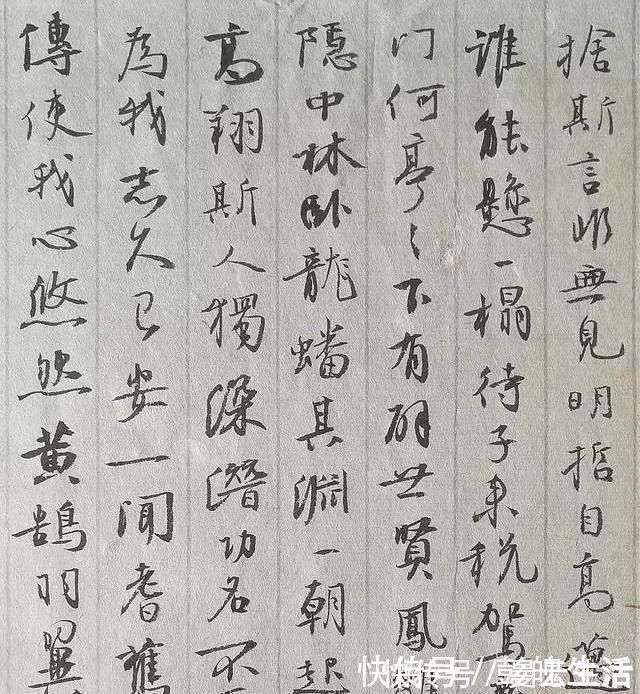 捨斯言非無見明哲自高
誰能懸一榻待子来税駕
门何亭々下有辟世賢鳳
隱中林卧龍蟠其淵一朝起
高翔斯人獨深潛功名不
為我志久已安一聞耆舊
傳使我心悠然黄鵠羽翼
快传号//生活